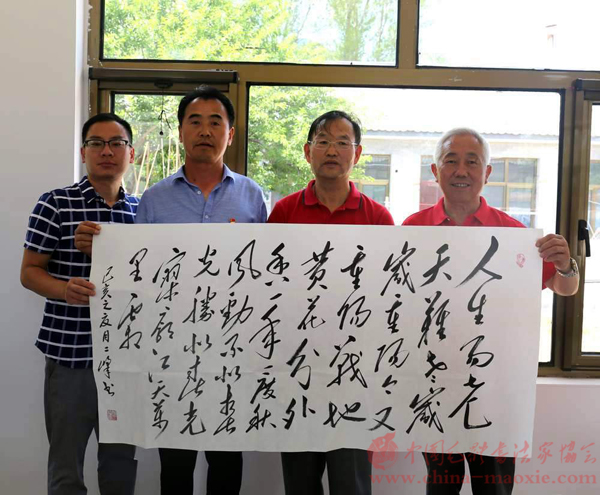 人生易老
天難老歲
歲重陽今又
重陽戰地
黃花分外
香一年一度秋
風勁不似春
光勝似春光
寥廓江天萬
里霜
己亥之夏月二澤書
中国毛体书法家协会
www.china-maoxie.com